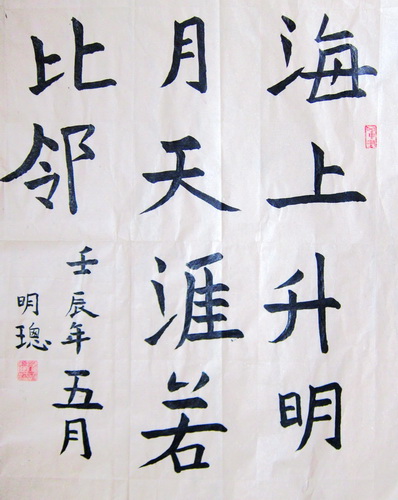 海上升明
月天涯若
比邻
壬辰年五月
明璁